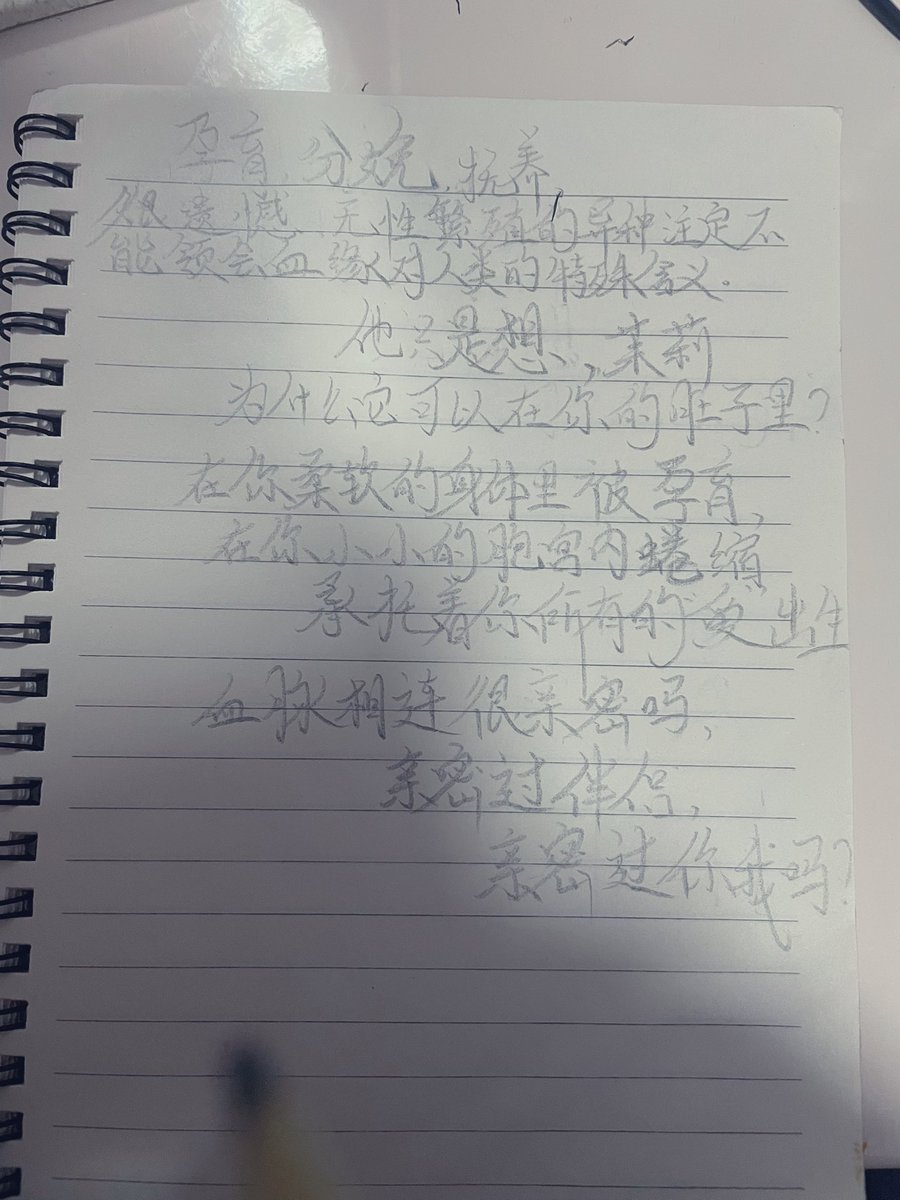 孕育,分娩,抚养,
很遗憾,无性繁殖的异种注定不
能领会血缘对人类的特殊含义.
他只是想,茉莉
为什么它可以在你的肚子里?
在你柔软的身体里被孕育,
在你小小的胞宫内蜷缩
承托着你所有的"爱"出生
血脉相连很亲密吗,
亲密过伴侣,
亲密过你我吗?